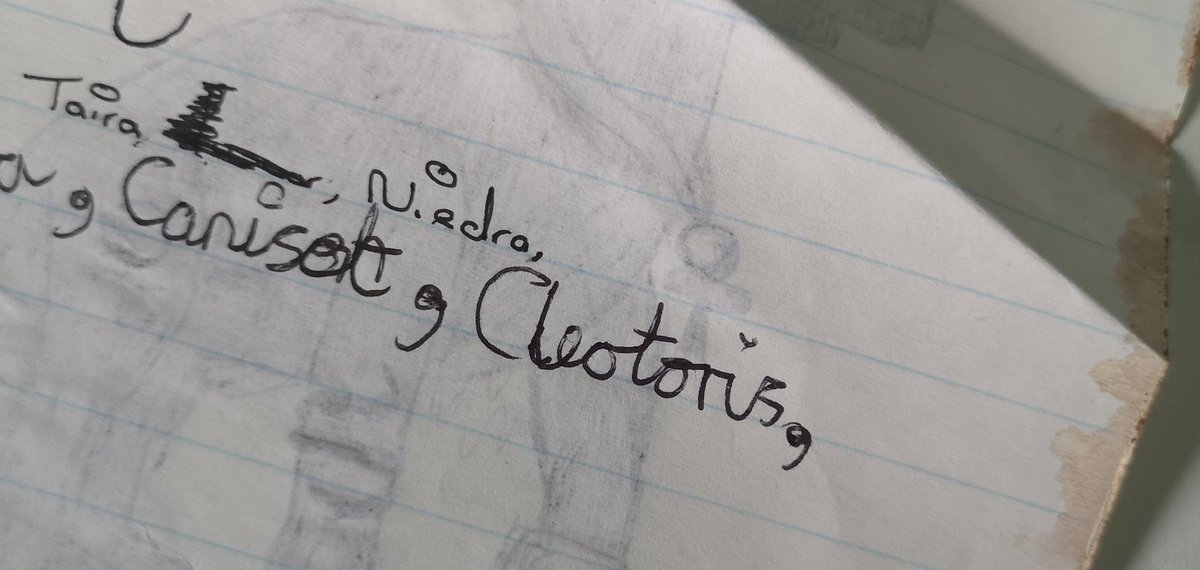 Taira, Niedra,
a, Canisok, Cleotoris,